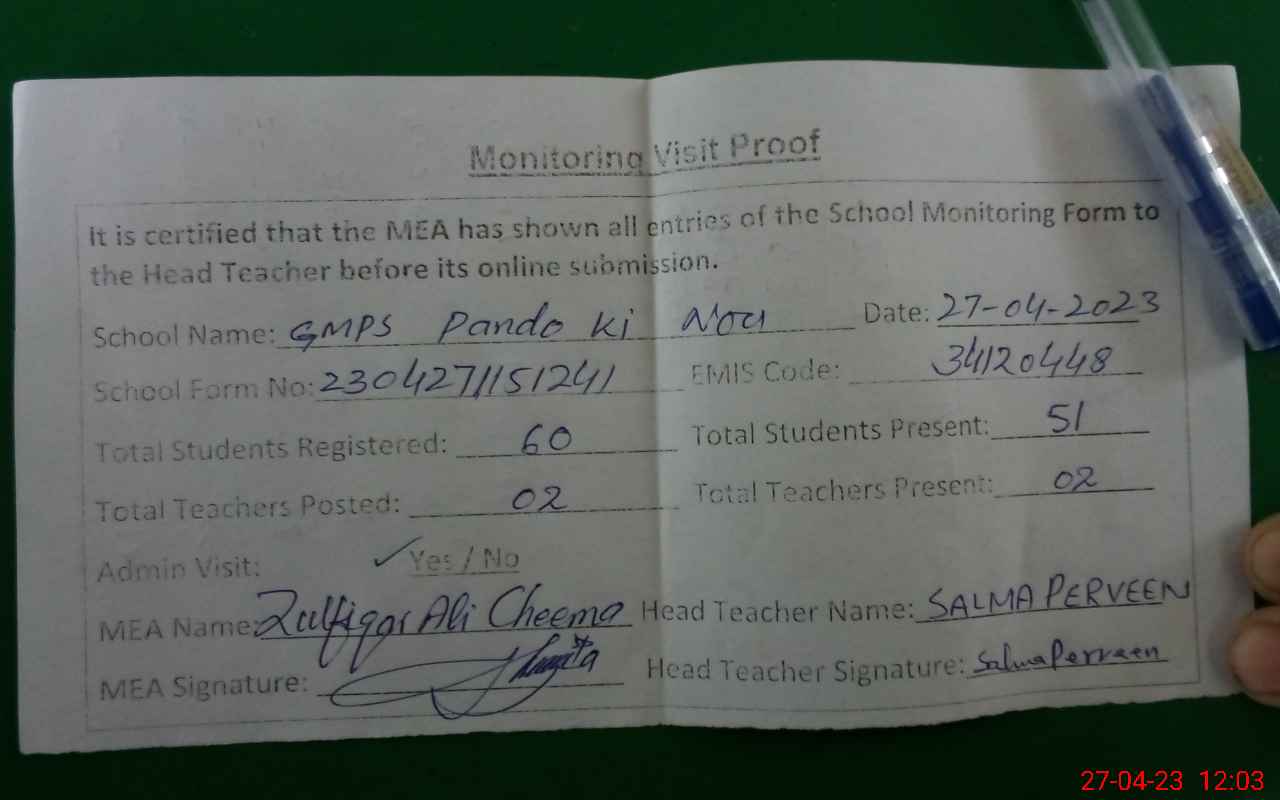 Monitoring Visit Proof
It is certified that the MEA has shown all entries of the School Monitoring Form to
the Head Teacher before its online submission.
School Name: GMPS Pando Ki Nou Date: 27-04-2023
School Form No: 2304271151241 EMIS Code: 34120448
Total Students Registered: 60 Total Students Present: 51
Total Teachers Posted: 02 Total Teachers Present: 02
Admin Visit: ✓ Yes / No
MEA Name: Zulfiqar Ali Cheema Head Teacher Name: SALMA PERVEEN
MEA Signature: Head Teacher Signature: Salma Perveen
27-04-23 12:03